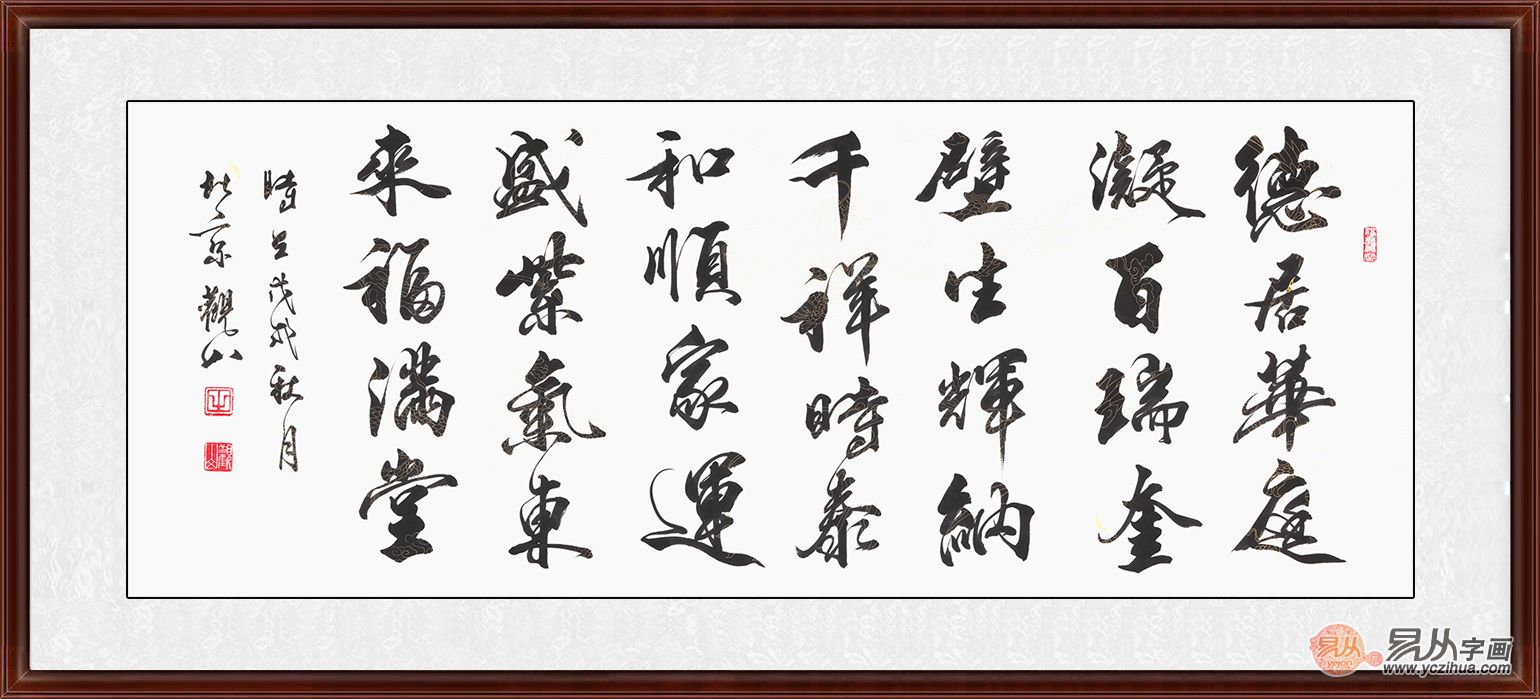 德居華庭
凝百瑞奎
壁生輝納
千祥時泰
和順家運
盛紫氣東
來福滿堂
時在戊戌秋月
北京觀山
易从
易从字画
www.yczihua.com